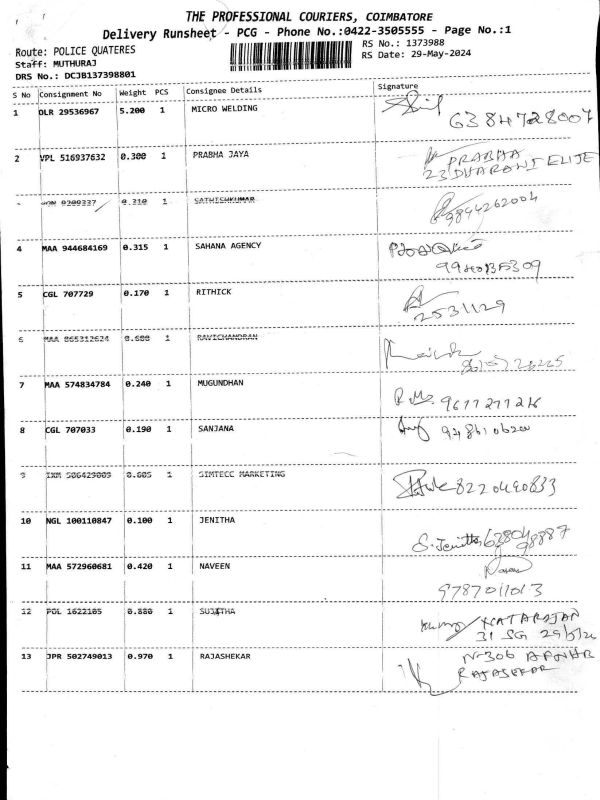 THE PROFESSIONAL COURIERS, COIMBATORE
Delivery Runsheet - PCG - Phone No.:0422-3505555 - Page No.:1
Route: POLICE QUATERES
RS No.: 1373988
Staff: MUTHURAJ
RS Date: 29-May-2024
DRS No.: DCJB137398801
S No Consignment No Weight PCS Consignee Details Signature
1 DLR 29536967 5.200 1 MICRO WELDING
6384728007
2 VPL 516937632 0.300 1 PRABHA JAYA PRABHA
23 DHARANI ELITE
9209337 0.310 1 SATHISHKUMAR
9894262004
4 MAA 944684169 0.315 1 SAHANA AGENCY
5 CGL 707729 0.170 1 RITHICK
2531129
6 MAA 865312624 0.600 1 RAVICHANDRAN
7 MAA 574834784 0.240 1 MUGUNDHAN
9677277216
8 CGL 707033 0.190 1 SANJANA
9 IXM 506429009 0.605 1 SIMTECC MARKETING
8220490833
10 NGL 100110847 0.100 1 JENITHA
S. Jenitha
11 MAA 572960681 0.420 1 NAVEEN
9787011013
12 POL 1622105 0.880 1 SUJITHA NATARAJAN
31 SG
13 JPR 502749013 0.970 1 RAJASHEKAR
N-306
RAJASEKAR